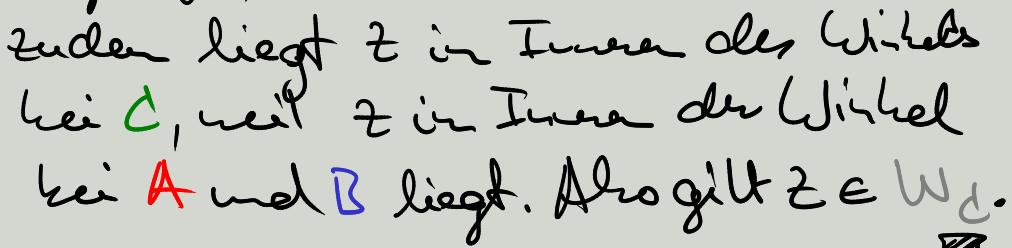 zudem liegt z im Inneren des Winkels
bei C, weil z im Inneren der Winkel
bei A und B liegt. Also gilt z ∈ W_C.